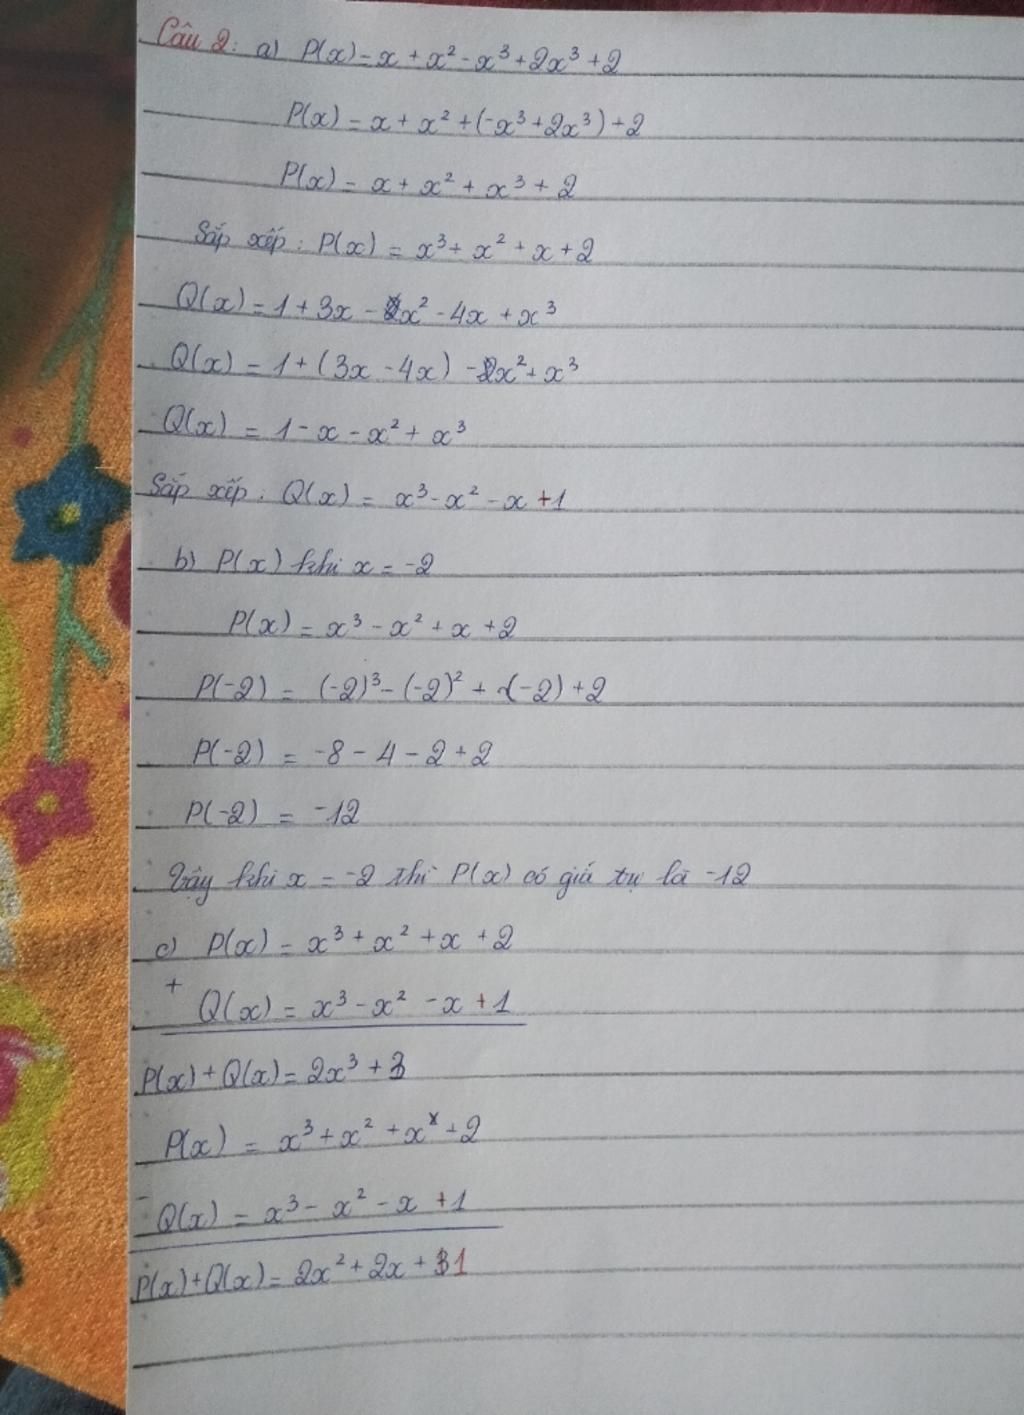 Câu 2: a) P(x) = x + x² - x³ + 2x³ + 2
P(x) = x + x² + (-x³ + 2x³) + 2
P(x) = x + x² + x³ + 2
Sắp xếp: P(x) = x³ + x² + x + 2
Q(x) = 1 + 3x - x² - 4x + x³
Q(x) = 1 + (3x - 4x) - x² + x³
Q(x) = 1 - x - x² + x³
Sắp xếp: Q(x) = x³ - x² - x + 1
b) P(x) khi x = -2
P(x) = x³ - x² + x + 2
P(-2) = (-2)³ - (-2)² + (-2) + 2
P(-2) = -8 - 4 - 2 + 2
P(-2) = -12
Vậy khi x = -2 thì P(x) có giá trị là -12
c) P(x) = x³ + x² + x + 2
+
Q(x) = x³ - x² - x + 1
P(x) + Q(x) = 2x³ + 3
P(x) = x³ + x² + x + 2
-
Q(x) = x³ - x² - x + 1
P(x) + Q(x) = 2x² + 2x + 1